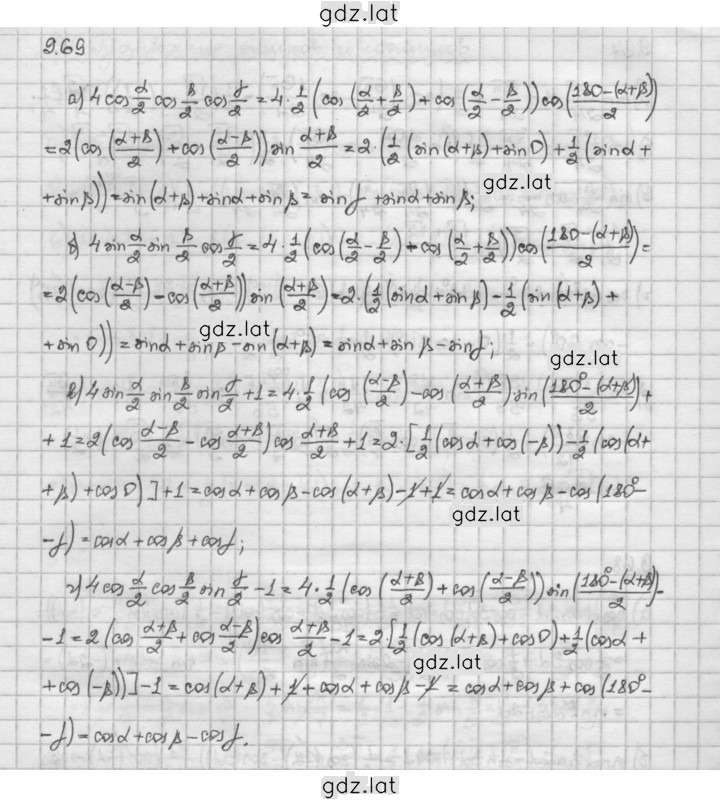 gdz.lat
9.69
а) 4 cos α/2 cos β/2 cos γ/2 = 4 · 1/2 (cos (α/2 + β/2) + cos (α/2 - β/2)) cos ((180 - (α+β))/2)
= 2 (cos ((α+β)/2) + cos ((α-β)/2)) sin (α+β)/2 = 2 · (1/2 (sin (α+β) + sin 0) + 1/2 (sin α +
+ sin β)) = sin (α+β) + sin α + sin β = sin γ + sin α + sin β;
gdz.lat
б) 4 sin α/2 sin β/2 cos γ/2 = 4 · 1/2 (cos (α/2 - β/2) - cos (α/2 + β/2)) cos ((180 - (α+β))/2) =
= 2 (cos ((α-β)/2) - cos ((α+β)/2)) sin ((α+β)/2) = 2 · (1/2 (sin α + sin β) - 1/2 (sin (α+β) +
+ sin 0)) = sin α + sin β - sin (α+β) = sin α + sin β - sin γ;
gdz.lat
gdz.lat
в) 4 sin α/2 sin β/2 sin γ/2 + 1 = 4 · 1/2 (cos ((α-β)/2) - cos ((α+β)/2) sin ((180° - (α+β))/2) +
+ 1 = 2 (cos (α-β)/2 - cos (α+β)/2) cos (α+β)/2 + 1 = 2 · [1/2 (cos α + cos (-β)) - 1/2 (cos (α+
+ β) + cos 0)] + 1 = cos α + cos β - cos (α+β) - 1 + 1 = cos α + cos β - cos (180° -
gdz.lat
- γ) = cos α + cos β + cos γ;
г) 4 cos α/2 cos β/2 sin γ/2 - 1 = 4 · 1/2 (cos ((α+β)/2) + cos ((α-β)/2)) sin ((180° - (α+β))/2) -
- 1 = 2 (cos (α+β)/2 + cos (α-β)/2) cos (α+β)/2 - 1 = 2 · [1/2 (cos (α+β) + cos 0) + 1/2 (cos α +
gdz.lat
+ cos (-β))] - 1 = cos (α+β) + 1 + cos α + cos β - 1 = cos α + cos β + cos (180° -
- γ) = cos α + cos β - cos γ.
gdz.lat